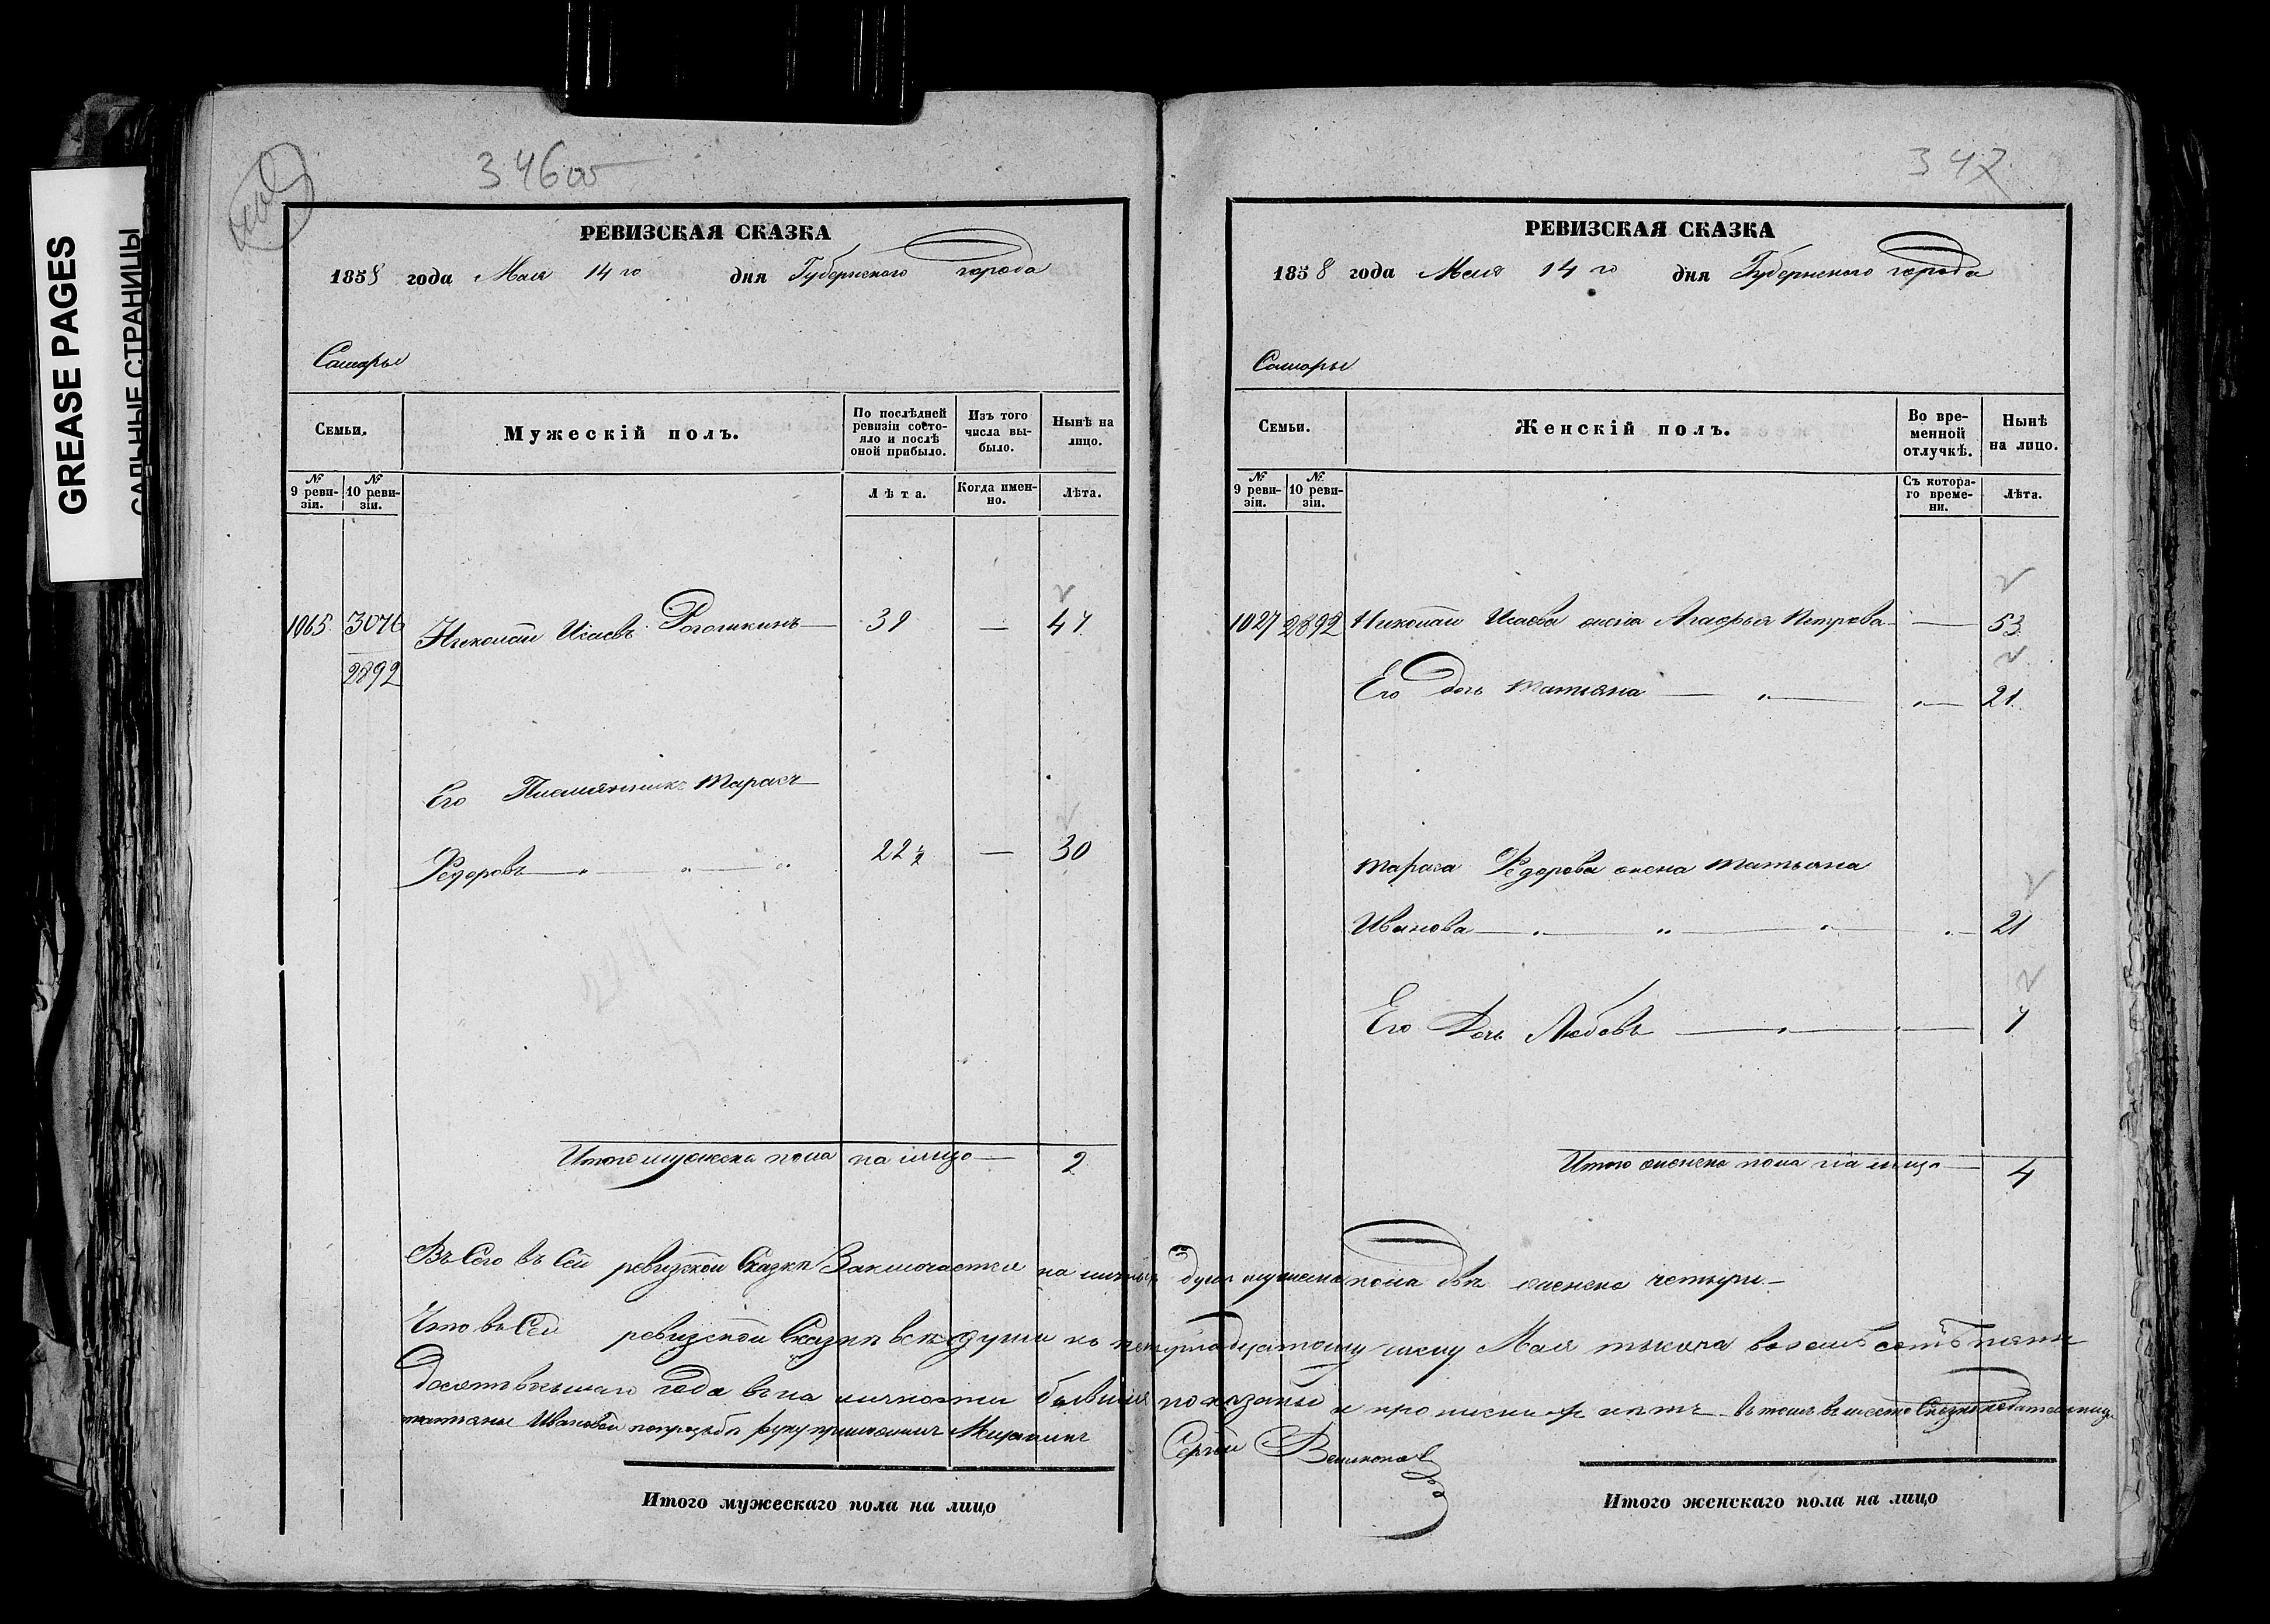 GREASE PAGES
САЛЬНЫЕ СТРАНИЦЫ
346 об
РЕВИЗСКАЯ СКАЗКА
1858 года Мая 14го дня Губернскаго города
Самары
Семьи.
Мужескій полъ.
По послѣдней ревизіи состояло и послѣ оной прибыло.
Изъ того числа выбыло.
Нынѣ на лицо.
№ 9 ревизіи.
№ 10 ревизіи.
Лѣта.
Когда именно.
Лѣта.
1065 3076 Николай Исаевъ Рогожкинъ — 39 — 47
2892
Его Племянникъ Тарасъ —
Федоровъ — " — " — " 22½ — 30
Итого мужеска пола на лицо — 2
347
РЕВИЗСКАЯ СКАЗКА
1858 года Мая 14го дня Губернскаго города
Самары
Семьи.
Женскій полъ.
Во временной отлучкѣ.
Нынѣ на лицо.
№ 9 ревизіи.
№ 10 ревизіи.
Съ котораго времени.
Лѣта.
1027 2892 Николая Исаева жена Агафья Петрова — — 53
Его дочь Татьяна — " — " — 21
Тараса Федорова жена Татьяна
Иванова — " — " — " — " — 21
Его Дочь Любовь — " — " — 7
Итого женска пола на лицо — 4
Въсего въ сей ревизской Сказки Заключается на личныхъ душъ мужеска пола двѣ женска четыри —
Что въ Сей ревизской Сказки всѣ души къ четырнадцатому числу Мая тысяча восемьсотъ пять
десятъ восьмаго года въ на личности бывшия показаны и прописныхъ нѣтъ въ томъ вместо Сказкоподательницы
татьяны Ивановой по прозьбѣ руку приложилъ Мещанинъ Сергей
Итого мужескаго пола на лицо
Итого женскаго пола на лицо